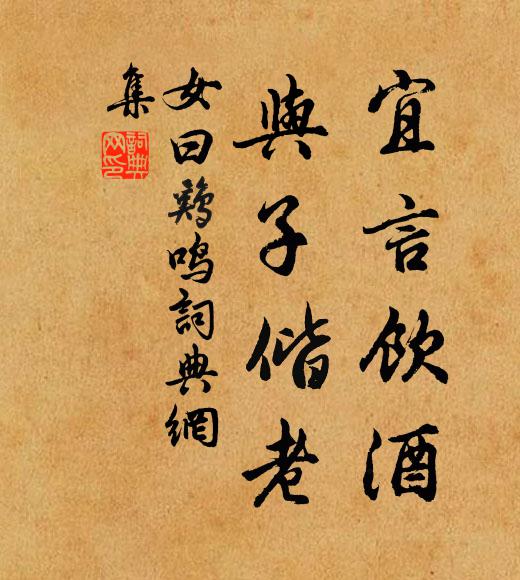 宜言飲酒
與子偕老
女曰鷄鳴詞典網
集
詞典
网印